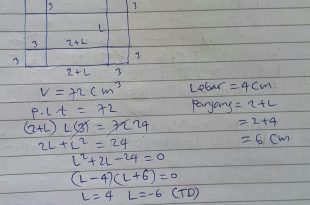 3 3
L
3 2+L 3
3 3
2+L 3
V = 72 cm³
p.l.t = 72
(2+L) L(3) = 72 24
2L + L² = 24
L² + 2L - 24 = 0
(L-4)(L+6) = 0
L = 4 L = -6 (TD)
Lebar = 4 cm
Panjang = 2+L
= 2+4
= 6 cm